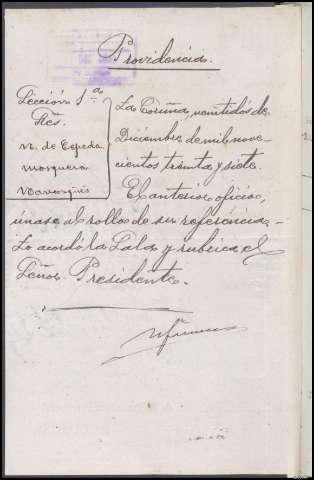 Providencia.
Sección 1ª
Sres.
N. de Cepeda
Mosquera
Navarques
La Coruña, veintidós de
Diciembre de mil nove-
cientos treinta y siete.
El anterior oficio,
únase al rollo de su referéncia.-
Lo acordó la Sala y rubrica el
Señor Presidente.